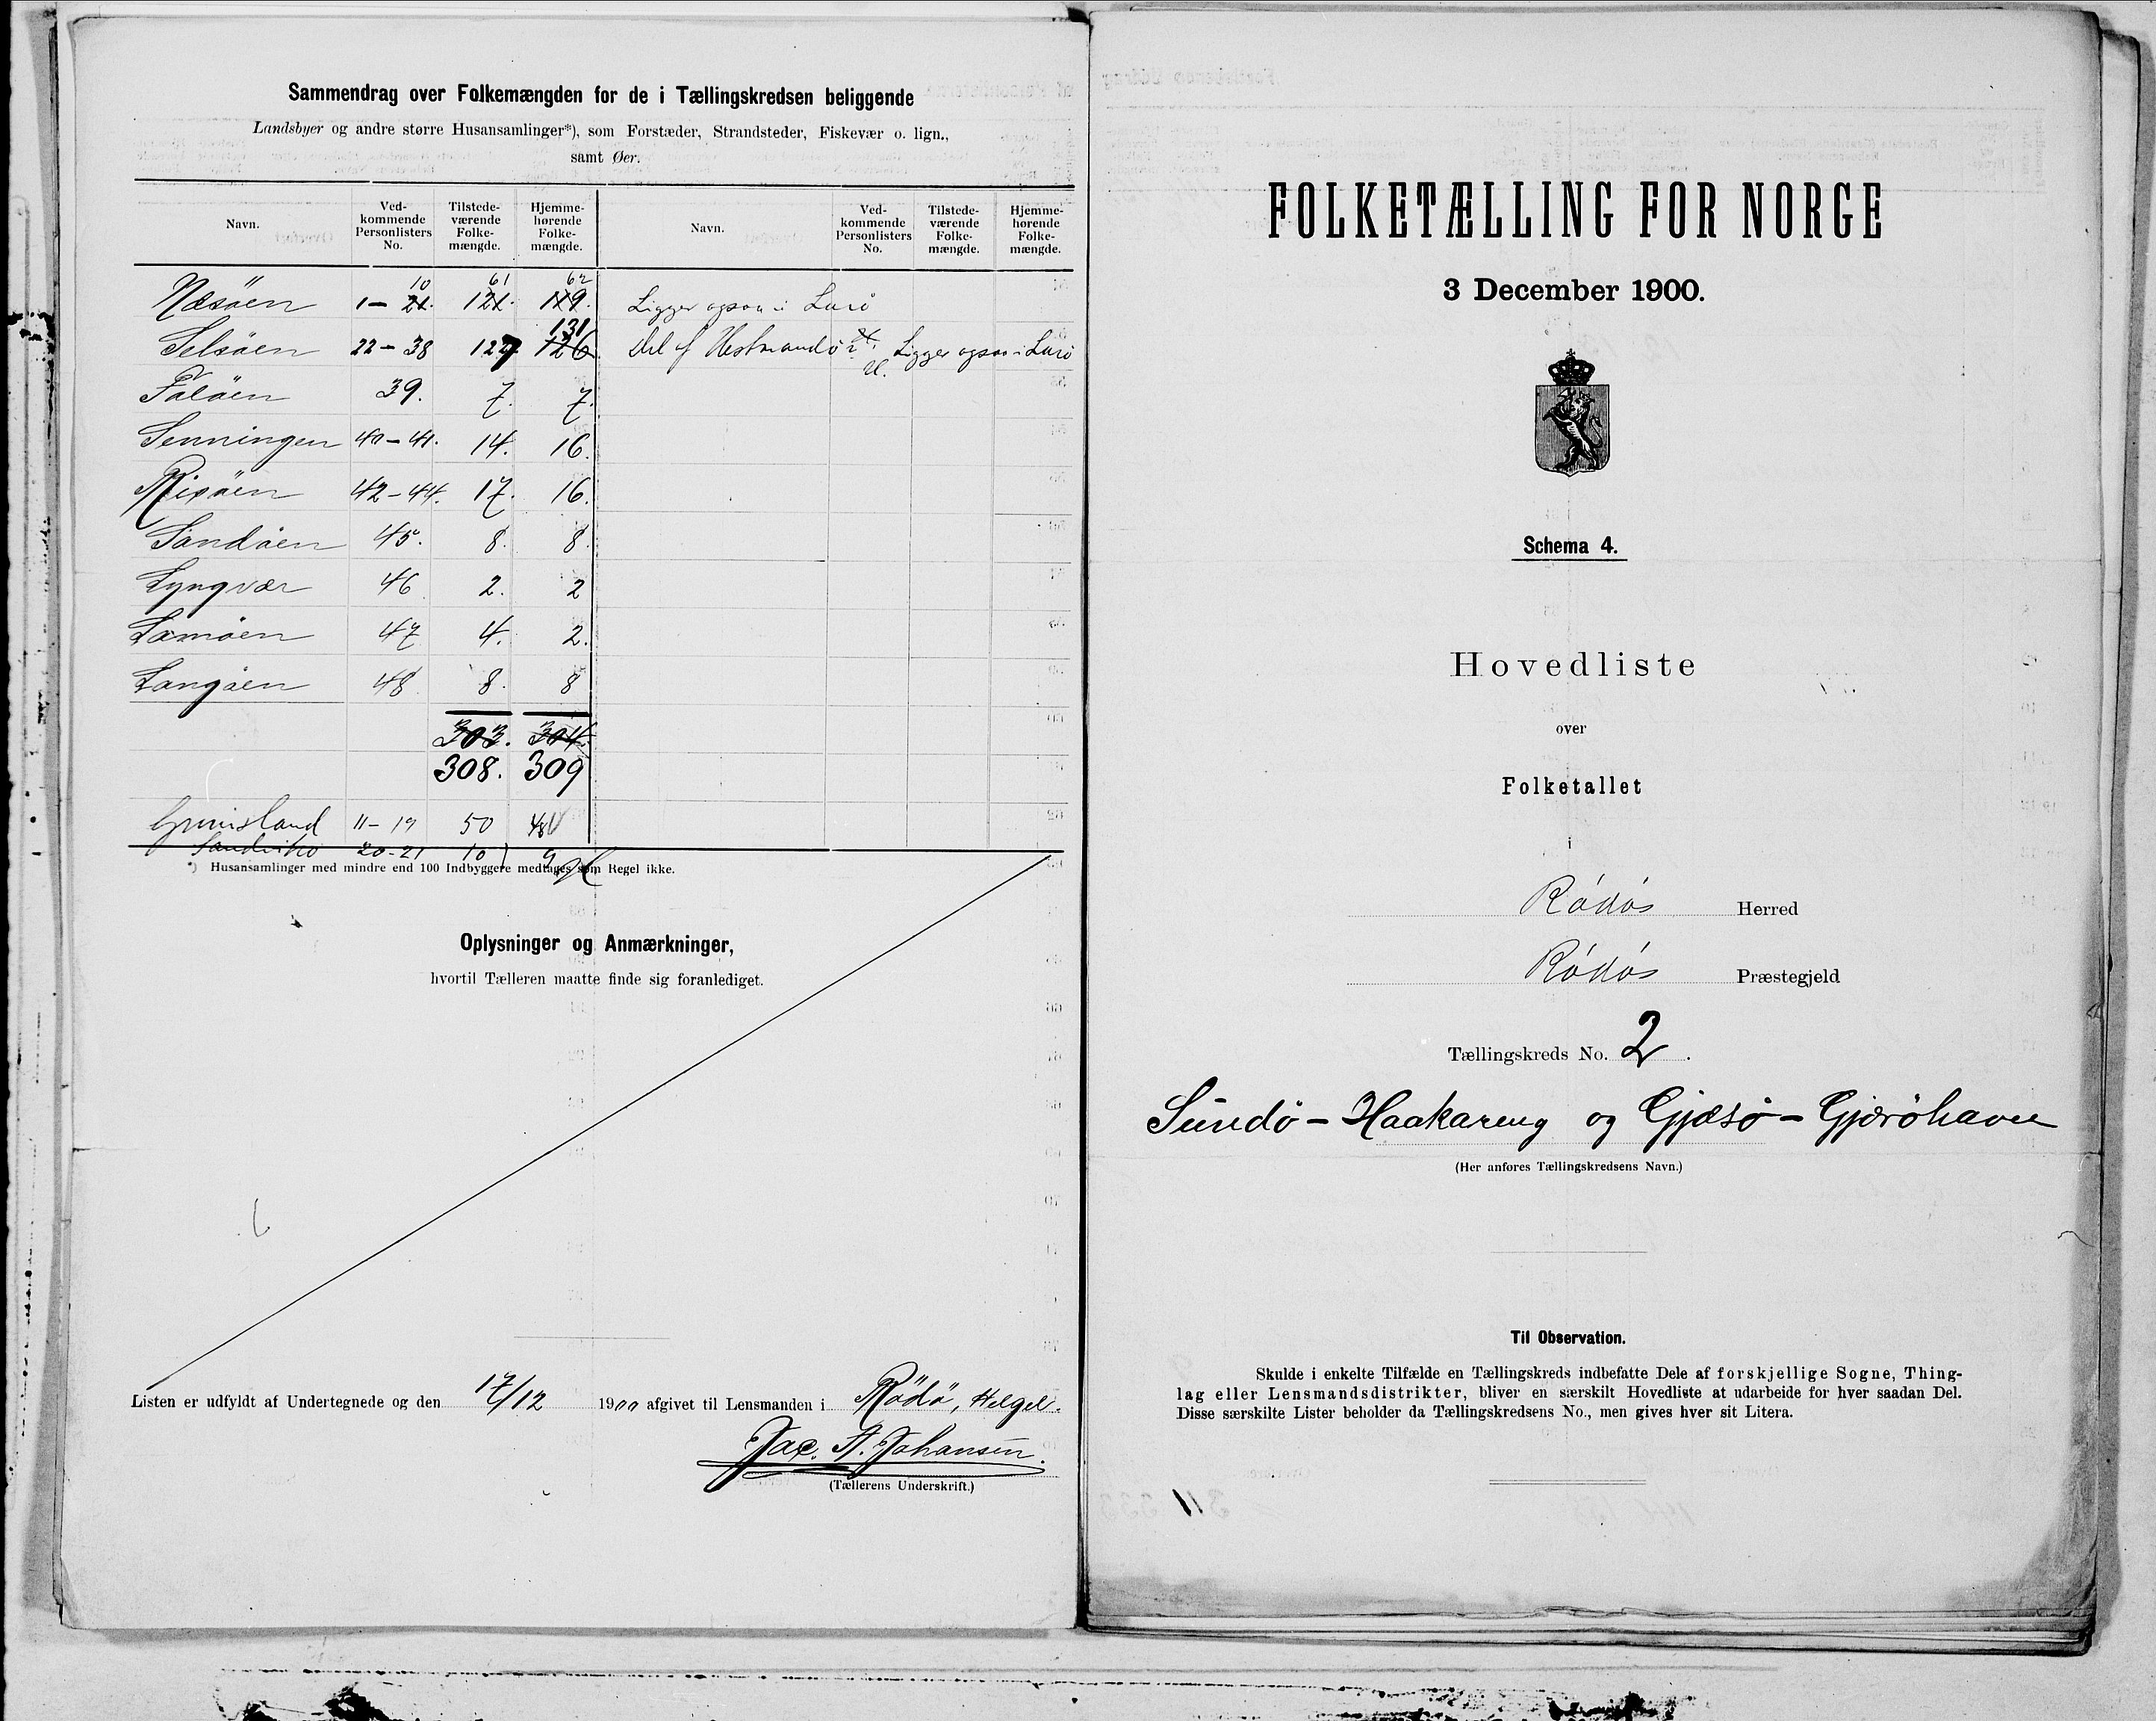 Sammendrag over Folkemængden for de i Tællingskredsen beliggende
Landsbyer og andre større Husansamlinger*), som Forstæder, Strandsteder, Fiskevær o. lign.,
samt Øer.
Navn. Ved-kommende Personlisters No. Tilstede-værende Folke-mængde. Hjemme-hørende Folke-mængde. Navn. Ved-kommende Personlisters No. Tilstede-værende Folke-mængde. Hjemme-hørende Folke-mængde.
10 61 62
Næsöen 1 – 21. 121. 119. Ligger ogsaa i Lurö
131
Selsöen 22 – 38 127 126. Del af Hestmandö Ligger ogsaa i Lurö
39. 7. 7.
Senningen 40 – 41. 14. 16.
Risöen 42 – 44. 17. 16.
Sandöen 45. 8. 8.
Lyngvær 46 2. 2
47 4. 2.
Langöen 48 8. 8
303. 304.
308. 309
Grimsland 11 – 19 50 48
20 – 21 10 9
*) Husansamlinger med mindre end 100 Indbyggere medtages som Regel ikke.
Oplysninger og Anmærkninger,
hvortil Tælleren maatte finde sig foranlediget.
Listen er udfyldt af Undertegnede og den 17/12 1900 afgivet til Lensmanden i Rödö, Helgel.
Jac. A. Johansen.
(Tællerens Underskrift.)
FOLKETÆLLING FOR NORGE
3 December 1900.
Schema 4.
Hovedliste
over
Folketallet
i
Rödös Herred
Rödös Præstegjeld
Tællingskreds No. 2.
Sundö – Haakareng og Gjæsö – Gjæröhavn
(Her anføres Tællingskredsens Navn.)
Til Observation.
Skulde i enkelte Tilfælde en Tællingskreds indbefatte Dele af forskjellige Sogne, Thing-
lag eller Lensmandsdistrikter, bliver en særskilt Hovedliste at udarbeide for hver saadan Del.
Disse særskilte Lister beholder da Tællingskredsens No., men gives hver sit Litera.